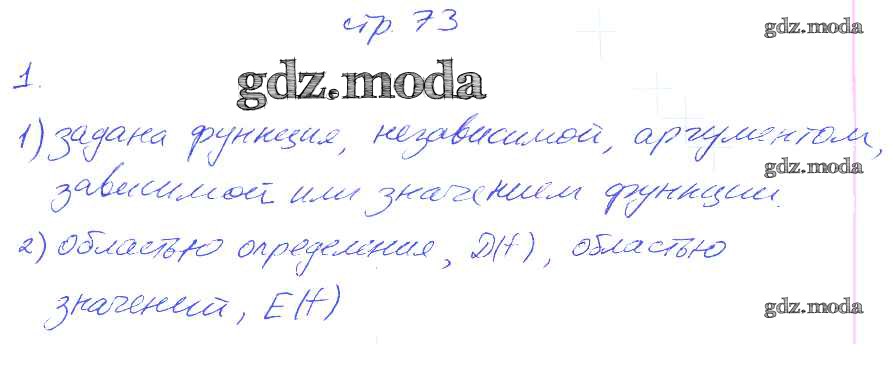 стр. 73
gdz.moda
1.
gdz.moda
1) задана функция, независимой, аргументом,
gdz.moda
зависимой или значением функции.
2) областью определения, D(f), областью
значений, E(f)
gdz.moda